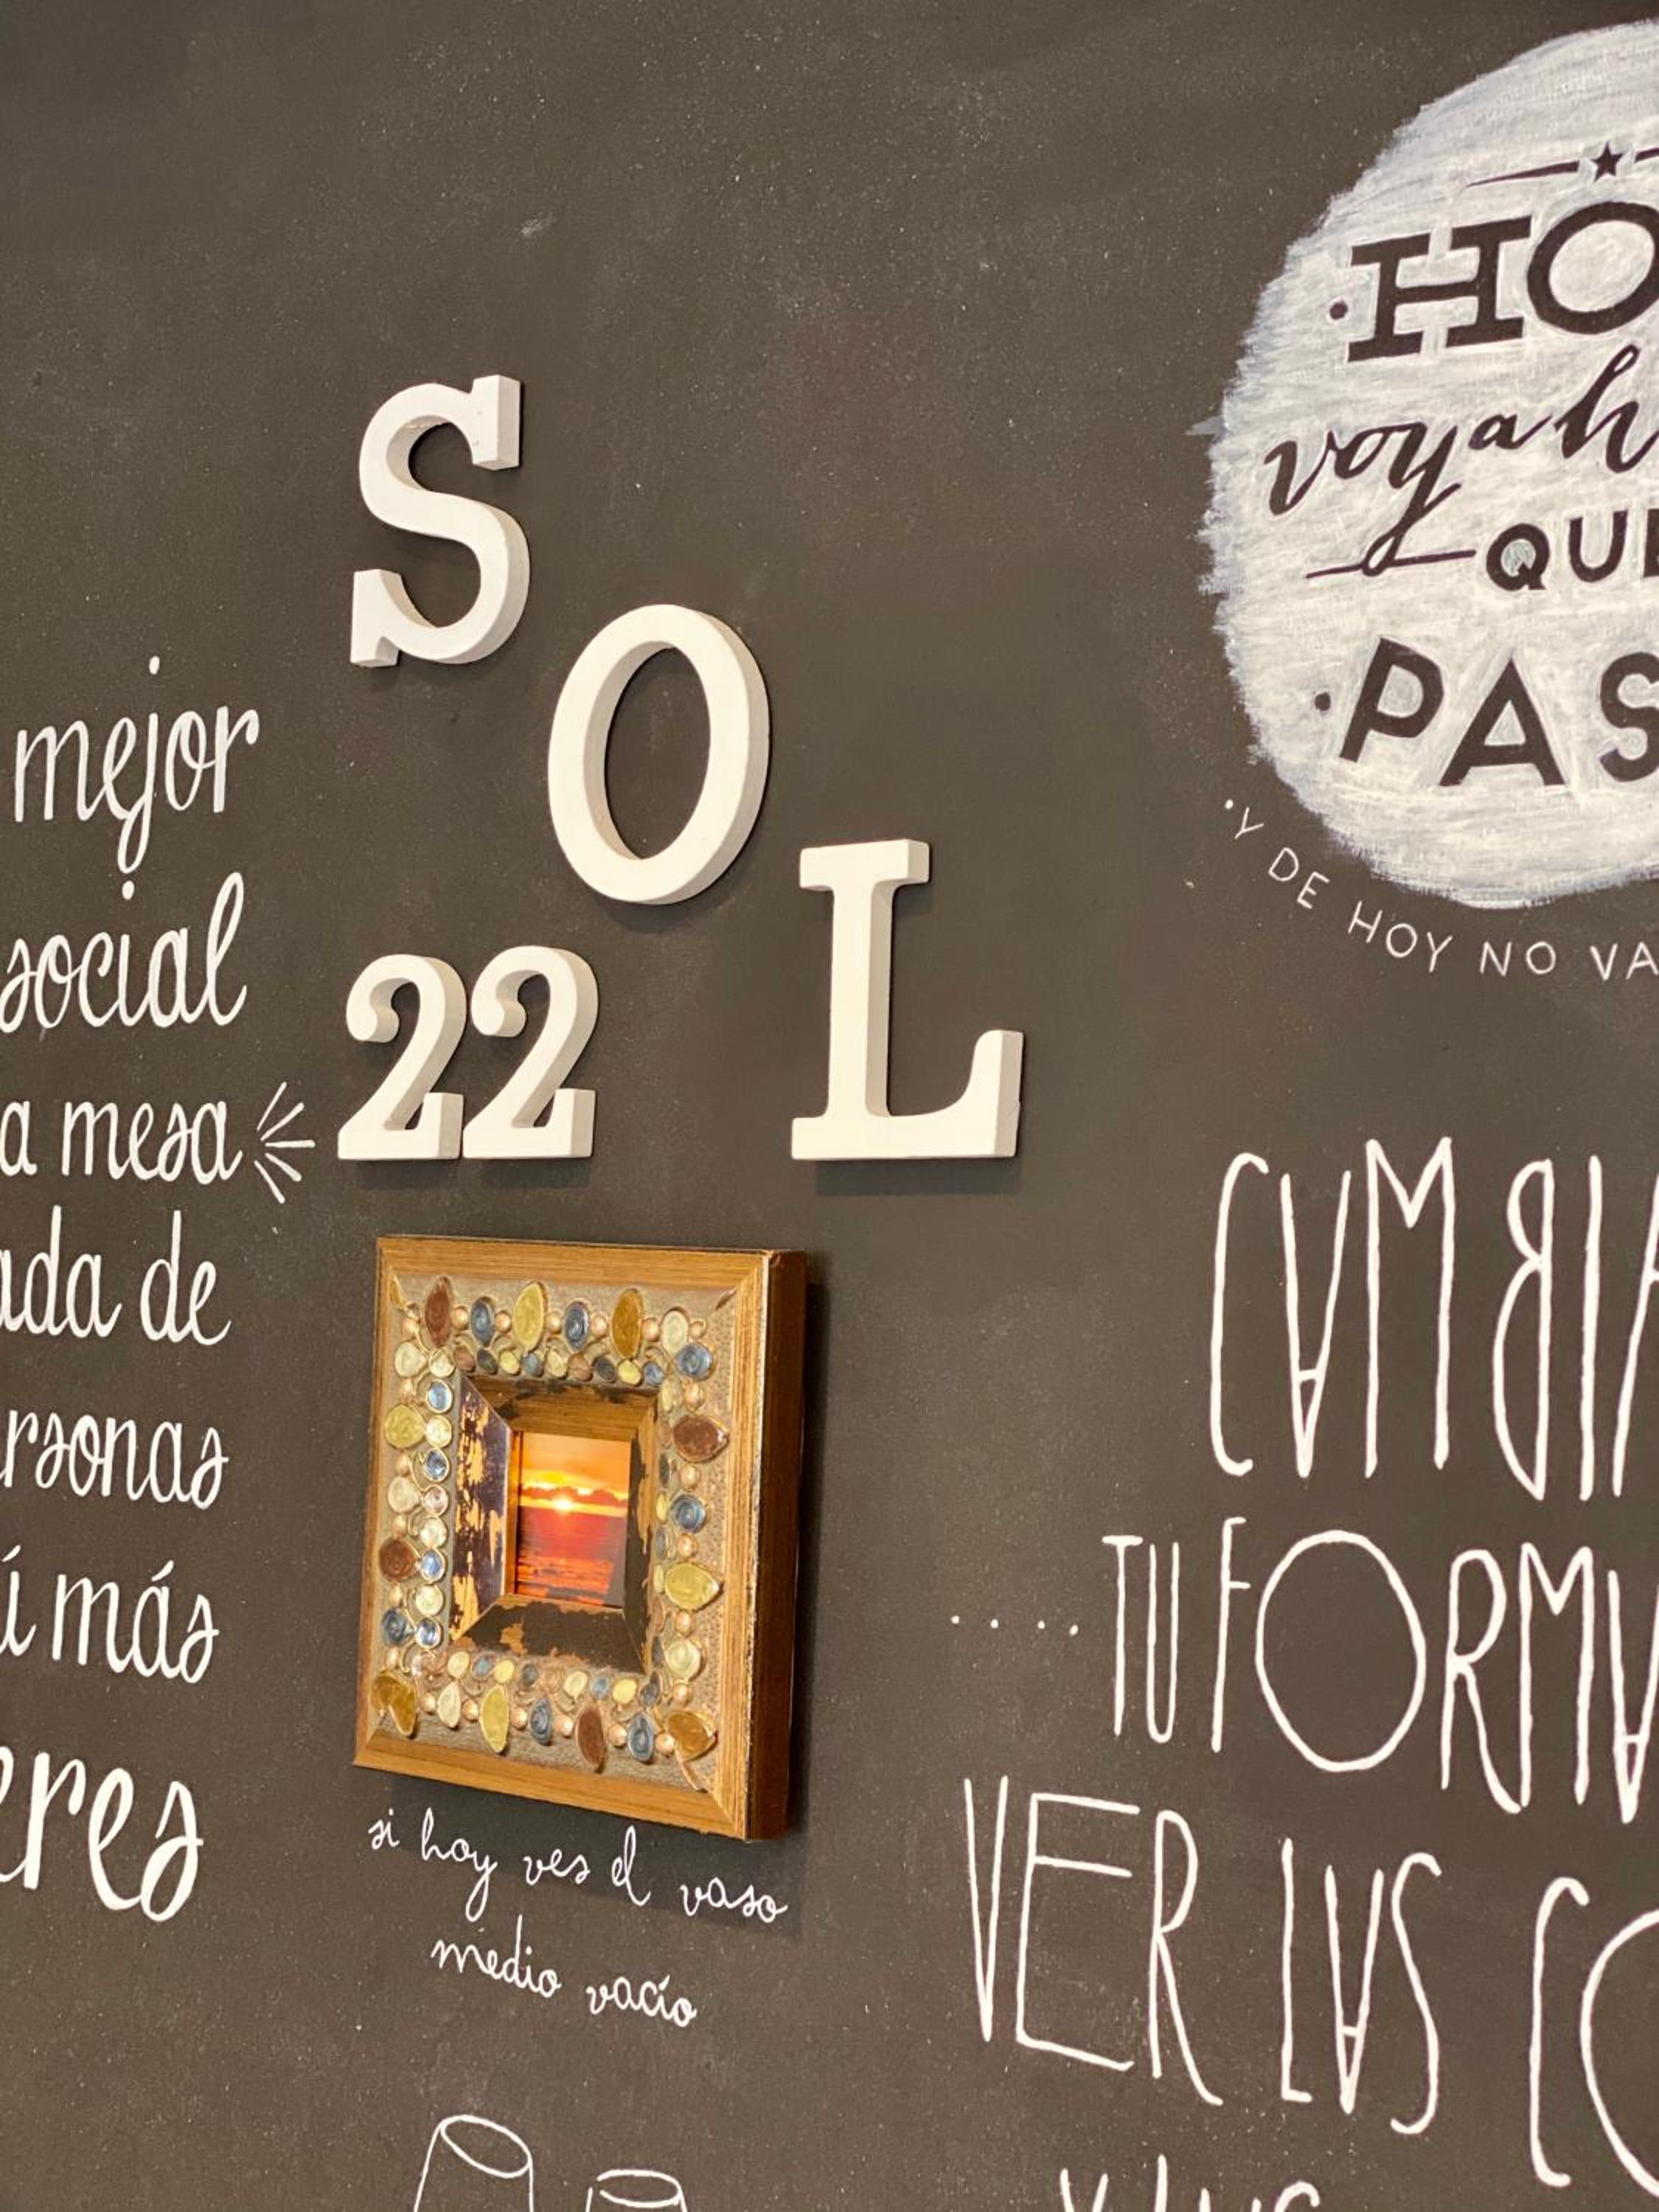 mejor
social
a mesa
ada de
rsonas
ú más
eres
S
O
L
22
si hoy ves el vaso
medio vacío
HO
voy a h
QUE
PAS
·Y DE HOY NO VA
CAMBIA
.....TU FORMA
VER LAS CO
Y LAS